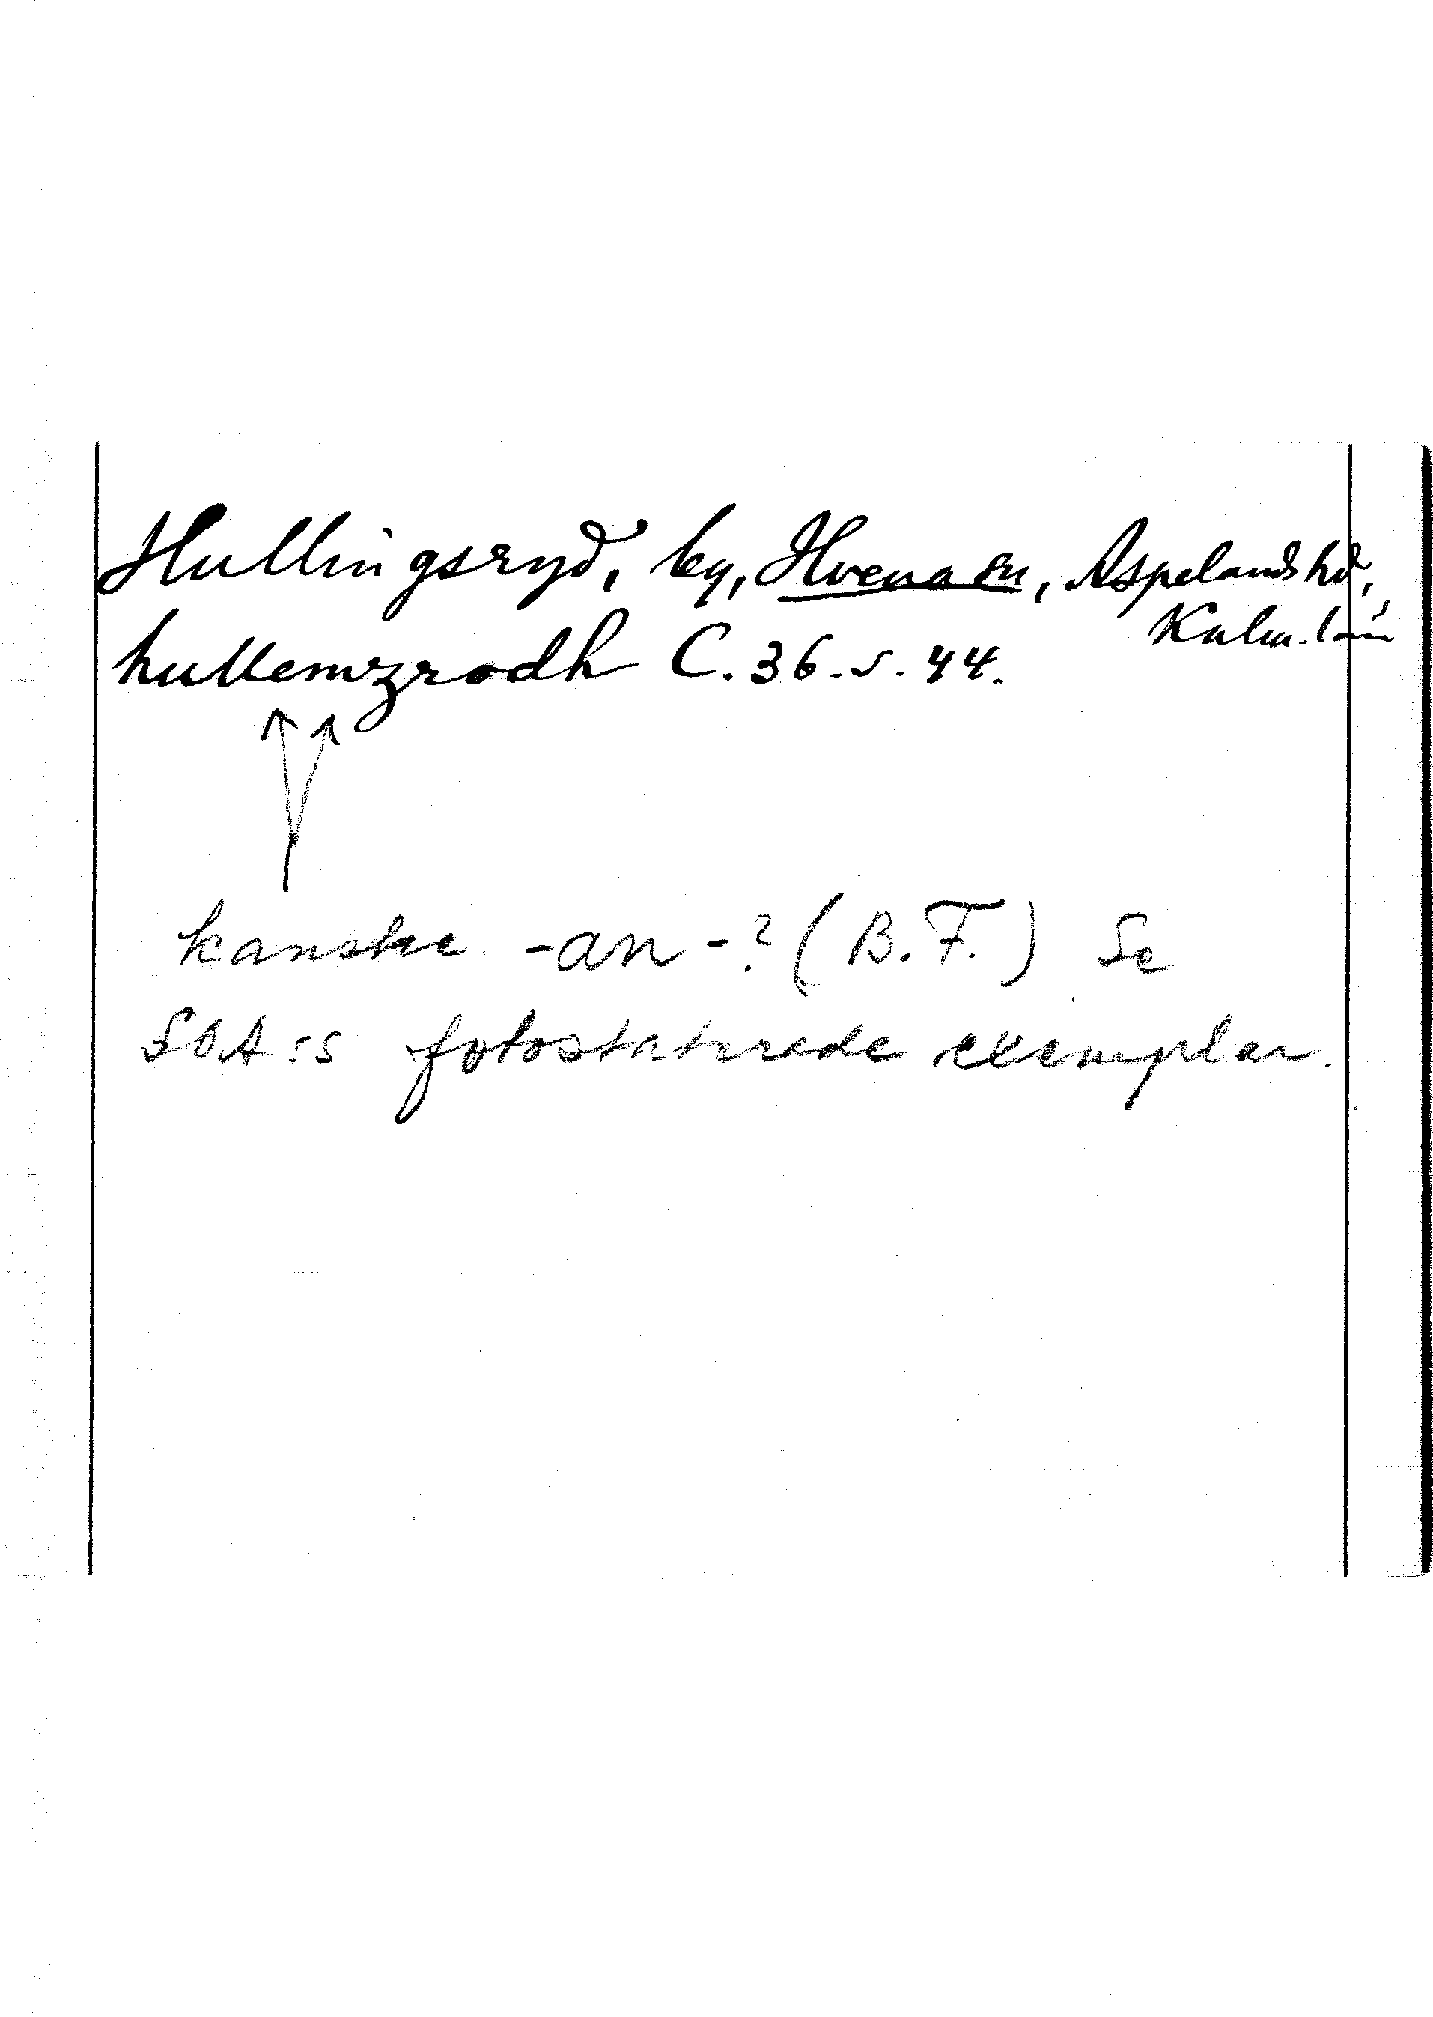 Hullingsryd, by, Hvena sn, Aspelands hd,
Kalm. län
hullemzrodh C. 36. s. 44.
kanske -an-? (B.F.) Se
SOA:s fotostaterade exemplar.